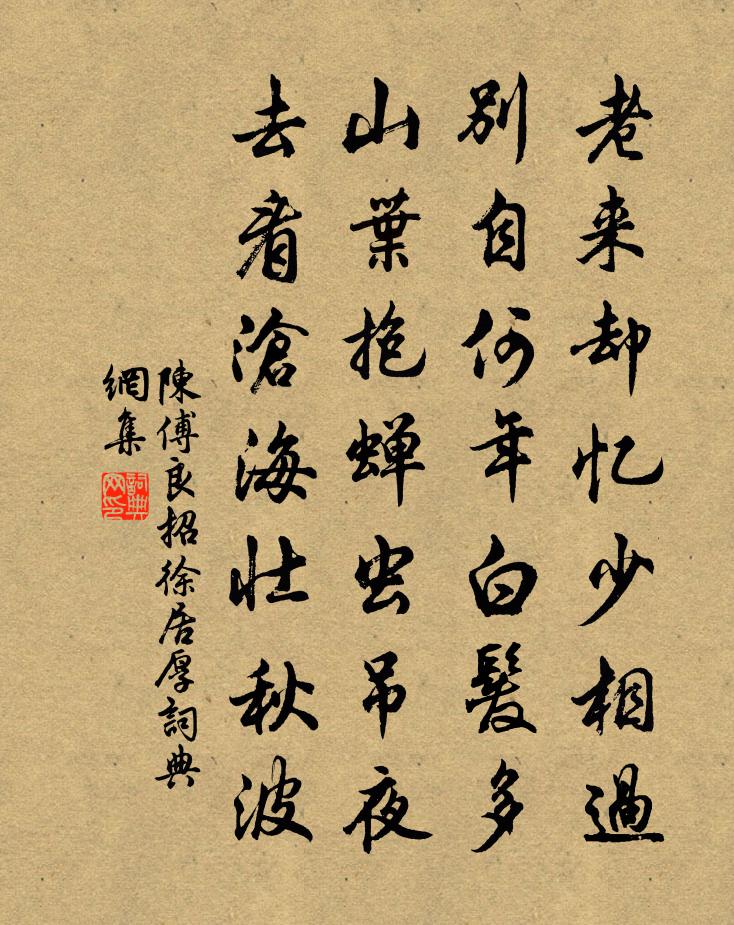 老来却忆少相過
別自何年白髮多
山葉抱蝉虫吊夜
去看滄海壮秋波
陳傅良招徐居厚詞典
網集
詞典
网印